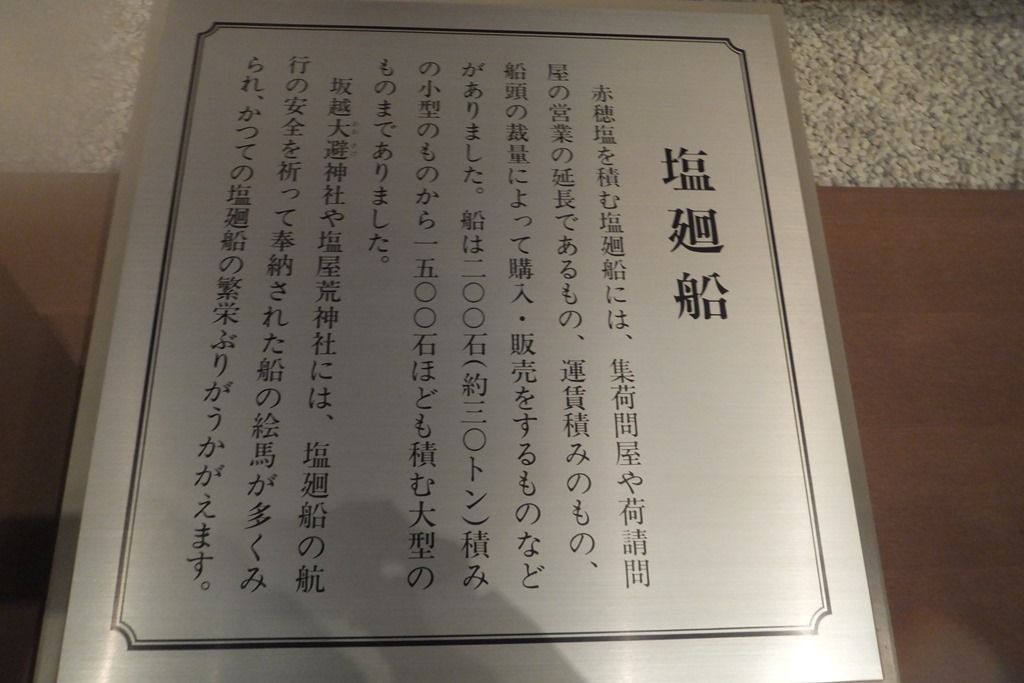 塩廻船
赤穂塩を積む塩廻船には、集荷問屋や荷請問
屋の営業の延長であるもの、運賃積みのもの、
船頭の裁量によって購入・販売をするものなど
がありました。船は二〇〇石(約三〇トン)積み
の小型のものから一五〇〇石ほども積む大型の
ものまでありました。
坂越大避神社や塩屋荒神社には、塩廻船の航
行の安全を祈って奉納された船の絵馬が多くみ
られ、かつての塩廻船の繁栄ぶりがうかがえます。